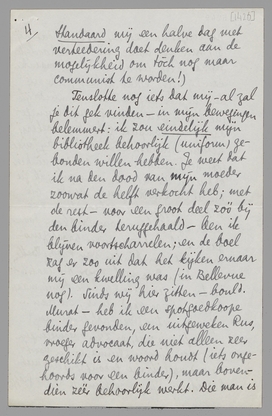 4/
Standaard mij een halve dag met
verteedering doet denken aan de
mogelijkheid om tòch nog maar
communist te worden!)
Tenslotte nog iets dat mij – al zal
je dit gek vinden – in mijn bewegingen
belemmert: ik zou eindelijk mijn
bibliotheek behoorlijk (uniform) ge-
bonden willen hebben. Je weet dat
ik na den dood van mijn moeder
zoowat de helft verkocht heb; met
de rest – voor een groot deel zóó bij
den binder teruggehaald – ben ik
blijven voortscharrelen; en de boel
zag er zoo uit dat het kijken ernaar
mij een kwelling was (in Bellevue
nog). Sinds wij hier zitten – bould.
Murat – heb ik een spotgoedkoope
binder gevonden, een uitgeweken Rus,
vroeger advocaat, die niet alleen zeer
geschikt is en woord houdt (iets onge-
hoords voor een binder), maar boven-
dien zéér behoorlijk werkt. Die man is